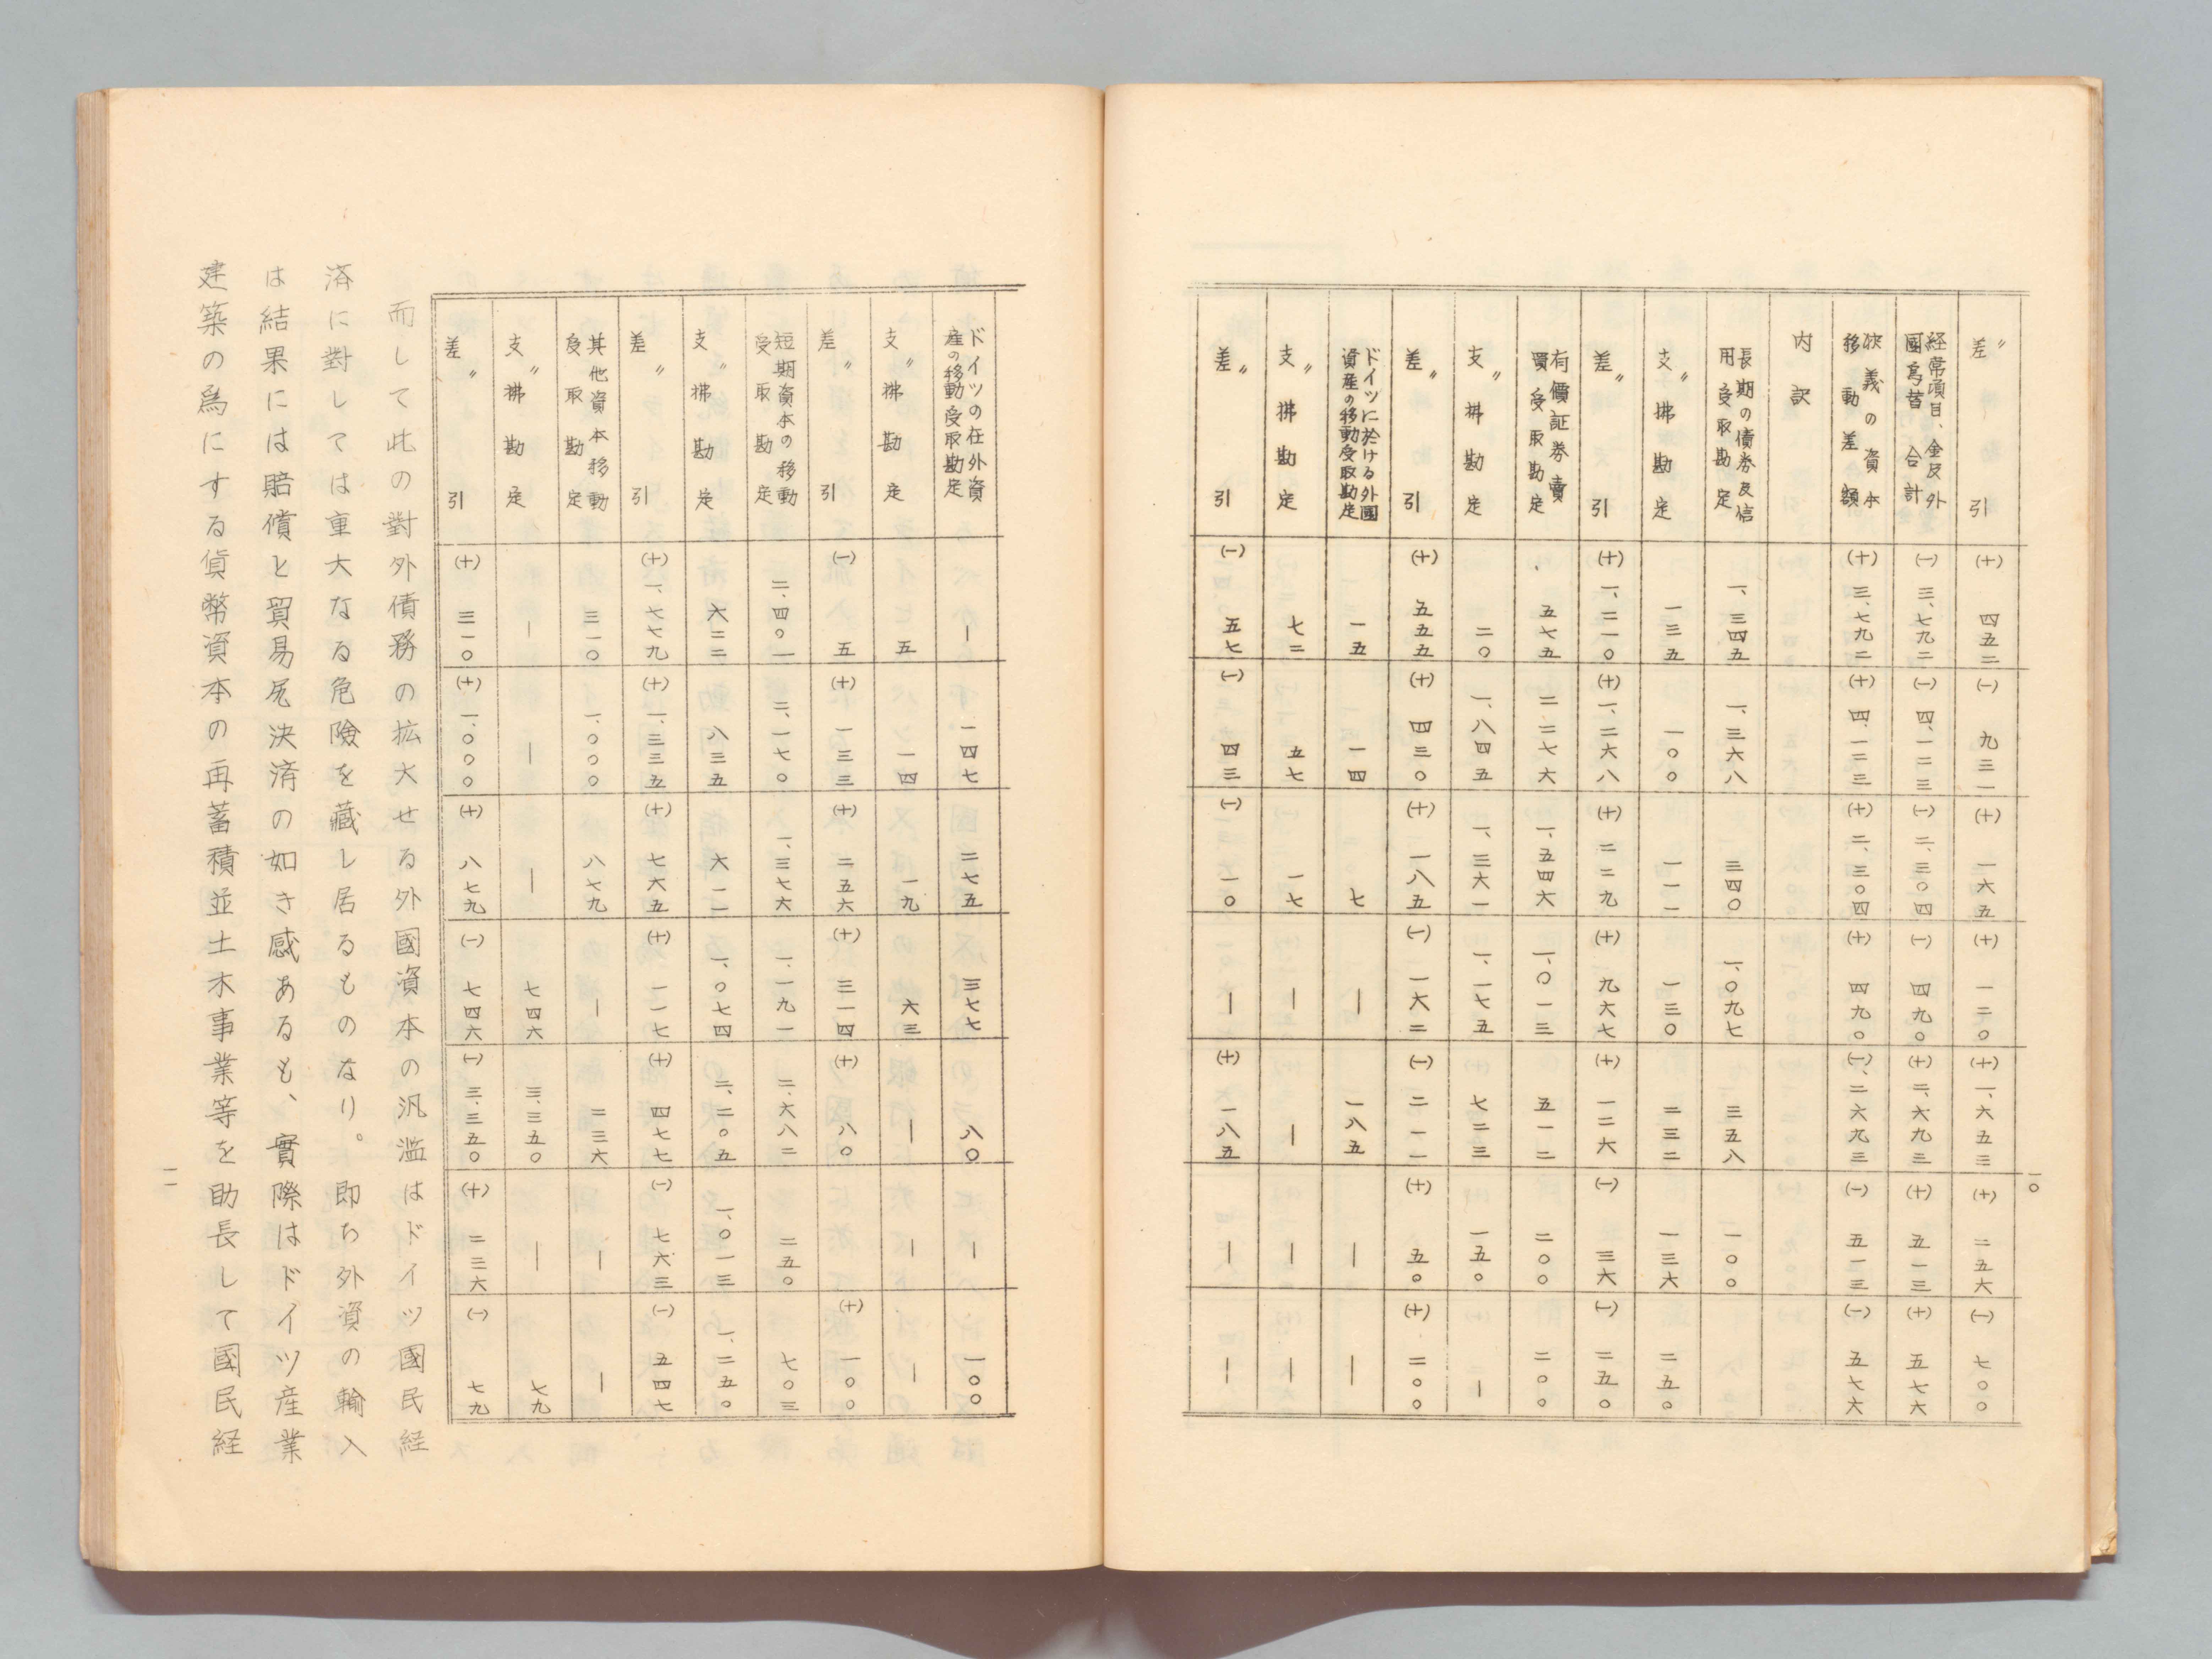 一〇
〃差引 (+)四五二 (-)九三一 (+)一六五 (+)一二〇 (+)一、六五三 (+)二五六 (-)七〇〇
経常項目、金及外
國為替合計 (-)三、七九二 (-)四、一二三 (-)二、三〇四 (-)四九〇 (+)二、六九三 (+)五一三 (+)五七六
狹義の資本
移動差額 (+)三、七九二 (+)四、一二三 (+)二、三〇四 (+)四九〇 (-)二、六九三 (-)五一三 (-)五七六
内訳
長期の債券及信
用受取勘定 一、三四五 一、三六八 三四〇 一、〇九七 三五八 一〇〇
〃支拂勘定 一三五 一〇〇 一一一 一三〇 二三二 一三六 二五〇
〃差引 (+)一、二一〇 (+)一、二六八 (+)二二九 (+)九六七 (+)一二六 (-)三六 (-)二五〇
有價証券賣
買受取勘定 五七五 二二七六 一、五四六 一、〇一三 五一二 二〇〇 二〇〇
〃支拂勘定 二〇 一、八四五 一、三六一 一、一七五 七二三 一五〇 —
〃差引 (+)五五五 (+)四三〇 (+)一八五 (-)一六二 (-)二一一 (+)五〇 (+)二〇〇
ドイツに於ける外國
資産の移動受取勘定 一五 一四 七 — 一八五 — —
〃支拂勘定 七二 五七 一七 — — — —
〃差引 (-)五七 (-)四三 (-)一〇 — (+)一八五 — —
ドイツの在外資
産の移動受取勘定 — 一四七 二七五 三七七 八〇 — 一〇〇
〃支拂勘定 五 一四 一九 六三 — — —
〃差引 (-)五 (+)一三三 (+)二五六 (+)三一四 (+)八〇 — (+)一〇〇
短期資本の移動
受取勘定 二、四〇一 二、一七〇 一、三七六 一、一九一 二、六八二 二五〇 七〇三
〃支拂勘定 六二二 八三五 六一一 一、〇七四 二、二〇五 一、〇一三 一、二五〇
〃差引 (+)一、七七九 (+)一、三三五 (+)七六五 (+)一一七 (+)四七七 (-)七六三 (-)五四七
其他資本移動
受取勘定 三一〇 一、〇〇〇 八七九 — 二三六 — —
〃支拂勘定 — — — 七四六 三、三五〇 — 七九
〃差引 (+)三一〇 (+)一、〇〇〇 (+)八七九 (-)七四六 (-)三、三五〇 (+)二三六 (-)七九
而して此の對外債務の拡大せる外國資本の汎濫はドイツ國民経
済に對しては重大なる危險を藏し居るものなり。即ち外資の輸入
は結果には賠償と貿易尻決済の如き感あるも、實際はドイツ産業
建築の為にする貨幣資本の再蓄積並土木事業等を助長して國民経
一一